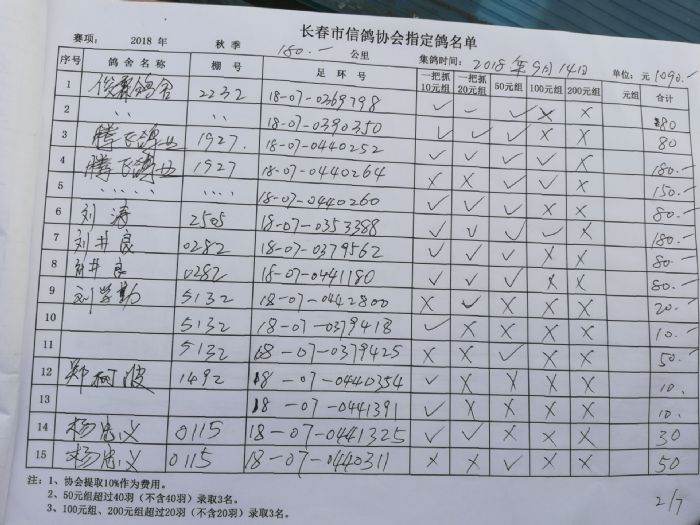 长春市信鸽协会指定鸽名单
赛项: 2018 年 秋 季 180.- 公里 集鸽时间: 2018年9月14日 单位: 元 1090.-
序号 鸽 舍 名 称 棚 号 足 环 号 一把抓10元组 一把抓20元组 50元组 100元组 200元组 元组 合计
1 鸽舍 2232 18-07-0369798 ✓ – ✓ × × 80
2 〃 〃 18-07-0390350 ✓ ✓ ✓ × × 80
3 腾飞鸽业 1927. 18-07-0440252 ✓ ✓ ✓ ✓ × 180.-
4 腾飞鸽业 1927 18-07-0440264 × × ✓ ✓ × 150.-
5 〃 〃 〃 〃 18-07-0440260 ✓ ✓ ✓ × × 80.-
6 刘涛 2505 18-07-0353388 ✓ ✓ ✓ ✓ × 180.-
7 刘井良 0282 18-07-0379562 ✓ ✓ ✓ × × 80.-
8 井良 0282 18-07-0441180 ✓ ✓ ✓ × × 80.-
9 刘学勤 5132 18-07-0442800 × ✓ × × × 20.-
10 5132 18-07-0379418 ✓ × × × × 10.-
11 5132 18-07-0379425 × × ✓ × × 50.-
12 郑柯波 1492 18-07-0440354 ✓ × × × × 10.
13 18-07-0441391 ✓ × × × × 10.
14 杨忠义 0115 18-07-0441325 ✓ ✓ × × × 30
15 杨忠义 0115 18-07-0440311 × × ✓ × × 50
注: 1、协会提取10%作为费用。
2、50元组超过40羽（不含40羽）录取3名。
3、100元组、200元组超过20羽（不含20羽）录取3名。
2/7